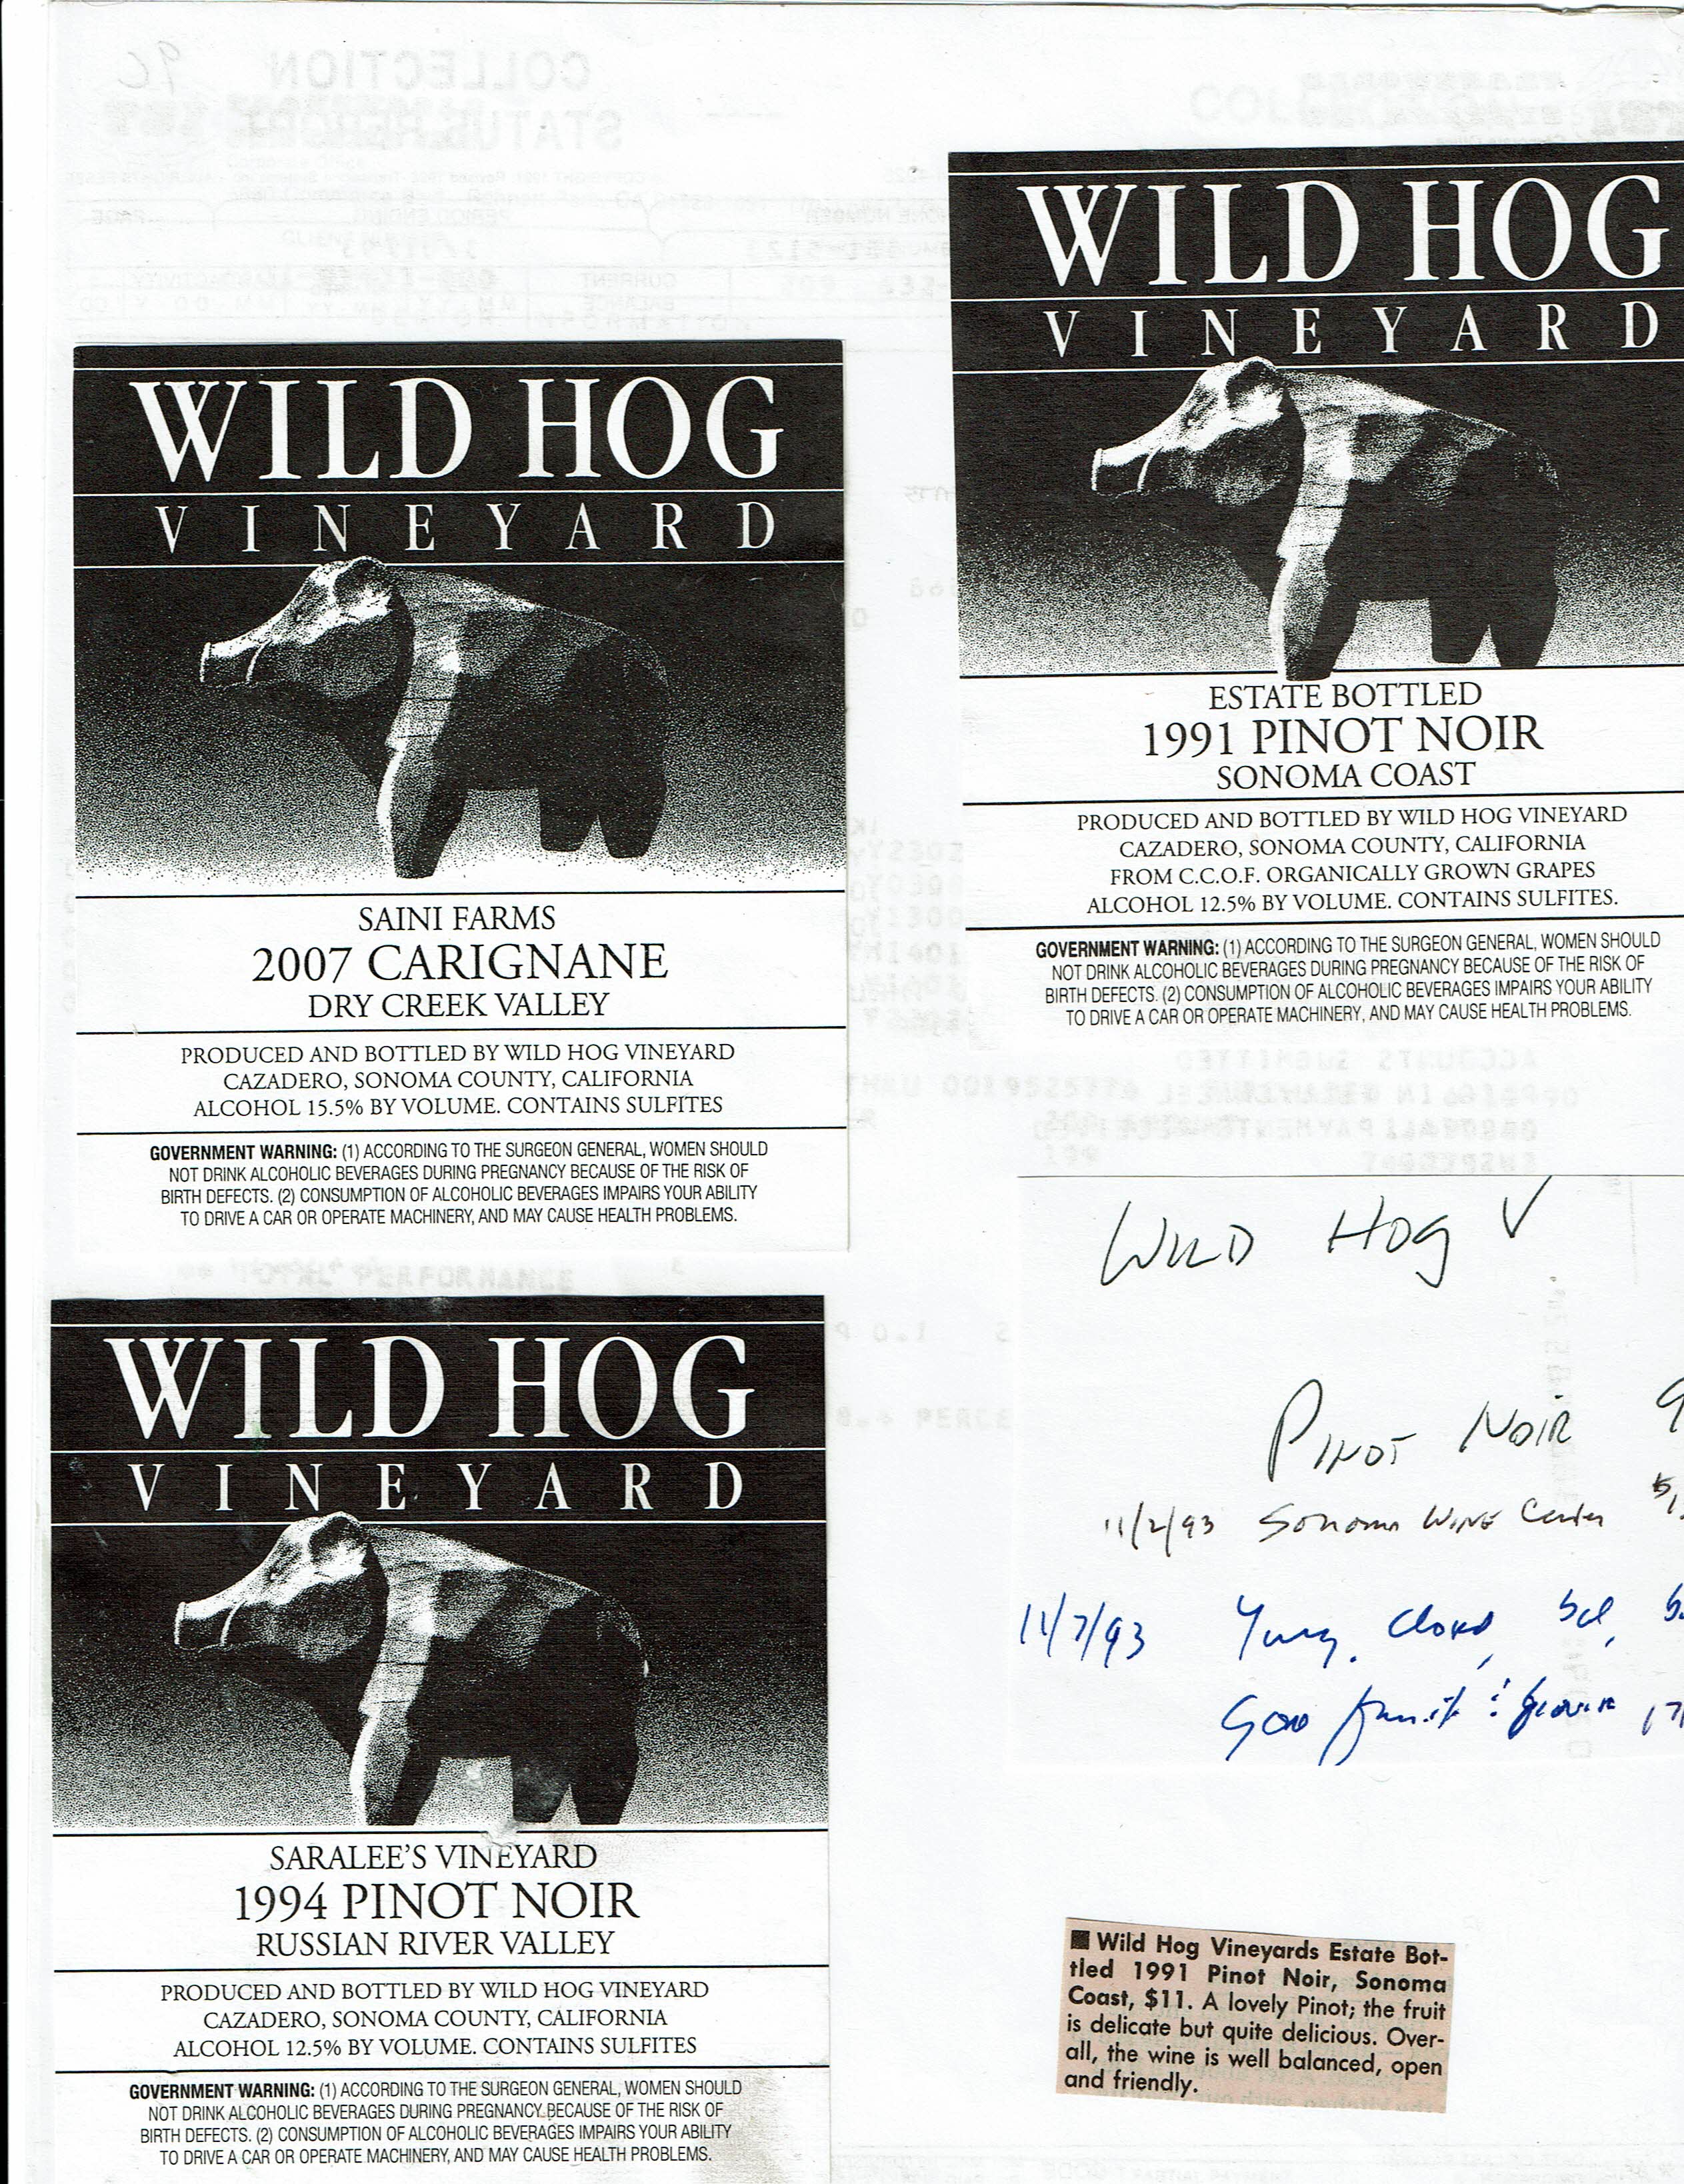 WILD HOG
VINEYARD
SAINI FARMS
2007 CARIGNANE
DRY CREEK VALLEY
PRODUCED AND BOTTLED BY WILD HOG VINEYARD
CAZADERO, SONOMA COUNTY, CALIFORNIA
ALCOHOL 15.5% BY VOLUME. CONTAINS SULFITES
GOVERNMENT WARNING: (1) ACCORDING TO THE SURGEON GENERAL, WOMEN SHOULD
NOT DRINK ALCOHOLIC BEVERAGES DURING PREGNANCY BECAUSE OF THE RISK OF
BIRTH DEFECTS. (2) CONSUMPTION OF ALCOHOLIC BEVERAGES IMPAIRS YOUR ABILITY
TO DRIVE A CAR OR OPERATE MACHINERY, AND MAY CAUSE HEALTH PROBLEMS.
WILD HOG
VINEYARD
SARALEE'S VINEYARD
1994 PINOT NOIR
RUSSIAN RIVER VALLEY
PRODUCED AND BOTTLED BY WILD HOG VINEYARD
CAZADERO, SONOMA COUNTY, CALIFORNIA
ALCOHOL 12.5% BY VOLUME. CONTAINS SULFITES
GOVERNMENT WARNING: (1) ACCORDING TO THE SURGEON GENERAL, WOMEN SHOULD
NOT DRINK ALCOHOLIC BEVERAGES DURING PREGNANCY BECAUSE OF THE RISK OF
BIRTH DEFECTS. (2) CONSUMPTION OF ALCOHOLIC BEVERAGES IMPAIRS YOUR ABILITY
TO DRIVE A CAR OR OPERATE MACHINERY, AND MAY CAUSE HEALTH PROBLEMS.
WILD HOG
VINEYARD
ESTATE BOTTLED
1991 PINOT NOIR
SONOMA COAST
PRODUCED AND BOTTLED BY WILD HOG VINEYARD
CAZADERO, SONOMA COUNTY, CALIFORNIA
FROM C.C.O.F. ORGANICALLY GROWN GRAPES
ALCOHOL 12.5% BY VOLUME. CONTAINS SULFITES.
GOVERNMENT WARNING: (1) ACCORDING TO THE SURGEON GENERAL, WOMEN SHOULD
NOT DRINK ALCOHOLIC BEVERAGES DURING PREGNANCY BECAUSE OF THE RISK OF
BIRTH DEFECTS. (2) CONSUMPTION OF ALCOHOLIC BEVERAGES IMPAIRS YOUR ABILITY
TO DRIVE A CAR OR OPERATE MACHINERY, AND MAY CAUSE HEALTH PROBLEMS.
WILD HOG V
PINOT NOIR 9
11/2/93 Sonoma WINE Center
11/7/93
Good fruit
■ Wild Hog Vineyards Estate Bot-
tled 1991 Pinot Noir, Sonoma
Coast, $11. A lovely Pinot; the fruit
is delicate but quite delicious. Over-
all, the wine is well balanced, open
and friendly.